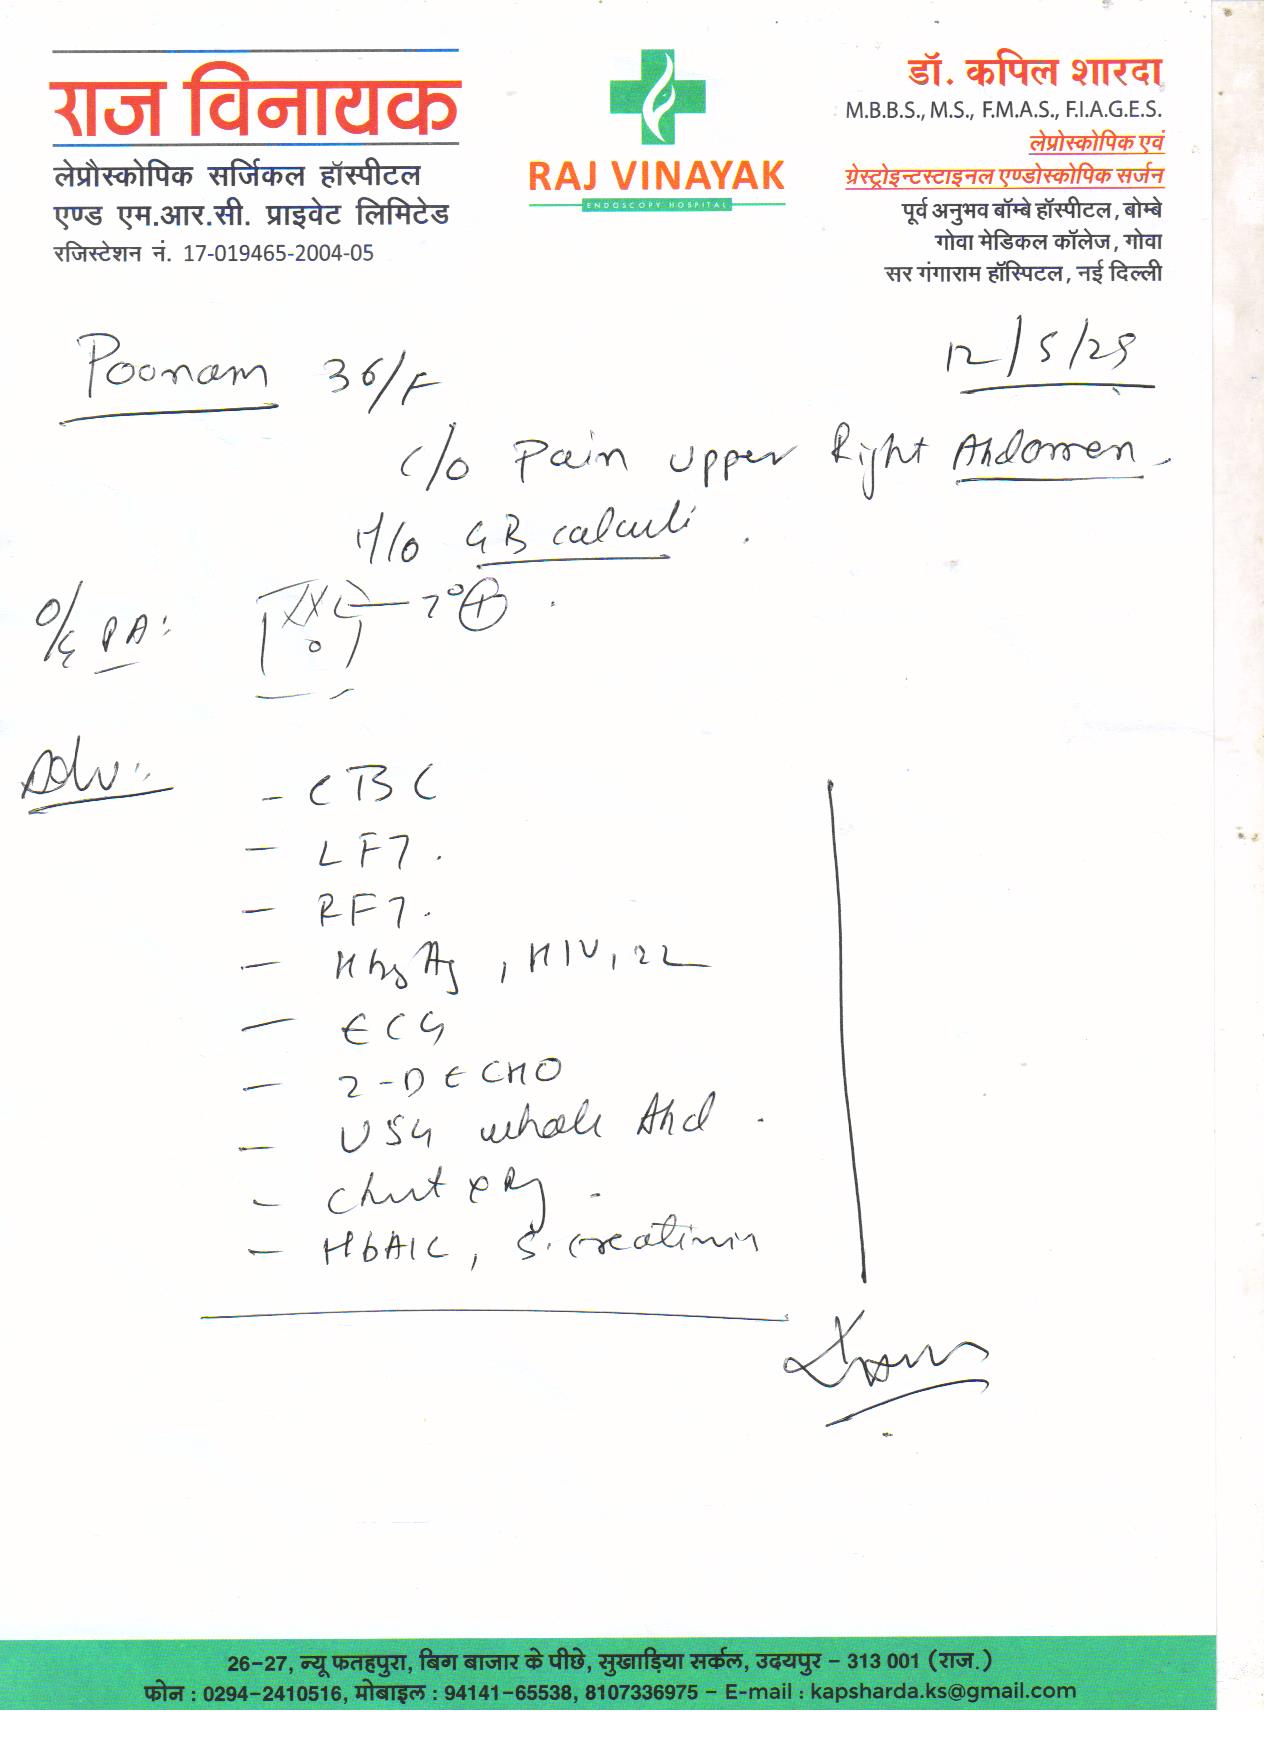 राज विनायक
लेप्रौस्कोपिक सर्जिकल हॉस्पीटल
एण्ड एम.आर.सी. प्राइवेट लिमिटेड
रजिस्टेशन नं. 17-019465-2004-05
RAJ VINAYAK
ENDOSCOPY HOSPITAL
डॉ. कपिल शारदा
M.B.B.S., M.S., F.M.A.S., F.I.A.G.E.S.
लेप्रोस्कोपिक एवं
ग्रेस्ट्रोइन्टस्टाइनल एण्डोस्कोपिक सर्जन
पूर्व अनुभव बॉम्बे हॉस्पीटल, बोम्बे
गोवा मेडिकल कॉलेज, गोवा
सर गंगाराम हॉस्पिटल, नई दिल्ली
Poonam 36/F
12/5/25
c/o Pain upper Right Abdomen
H/o GB calculi.
O/E PA:
T° +
Adv:
- CBC
- LFT.
- RFT.
- HbsAg, HIV,
- ECG
- 2-D ECHO
- USG whole Abd.
- Chest xRy.
- HbA1C, S. creatinin
26-27, न्यू फतहपुरा, बिग बाजार के पीछे, सुखाड़िया सर्कल, उदयपुर – 313 001 (राज.)
फोन : 0294-2410516, मोबाइल : 94141-65538, 8107336975 – E-mail : kapsharda.ks@gmail.com